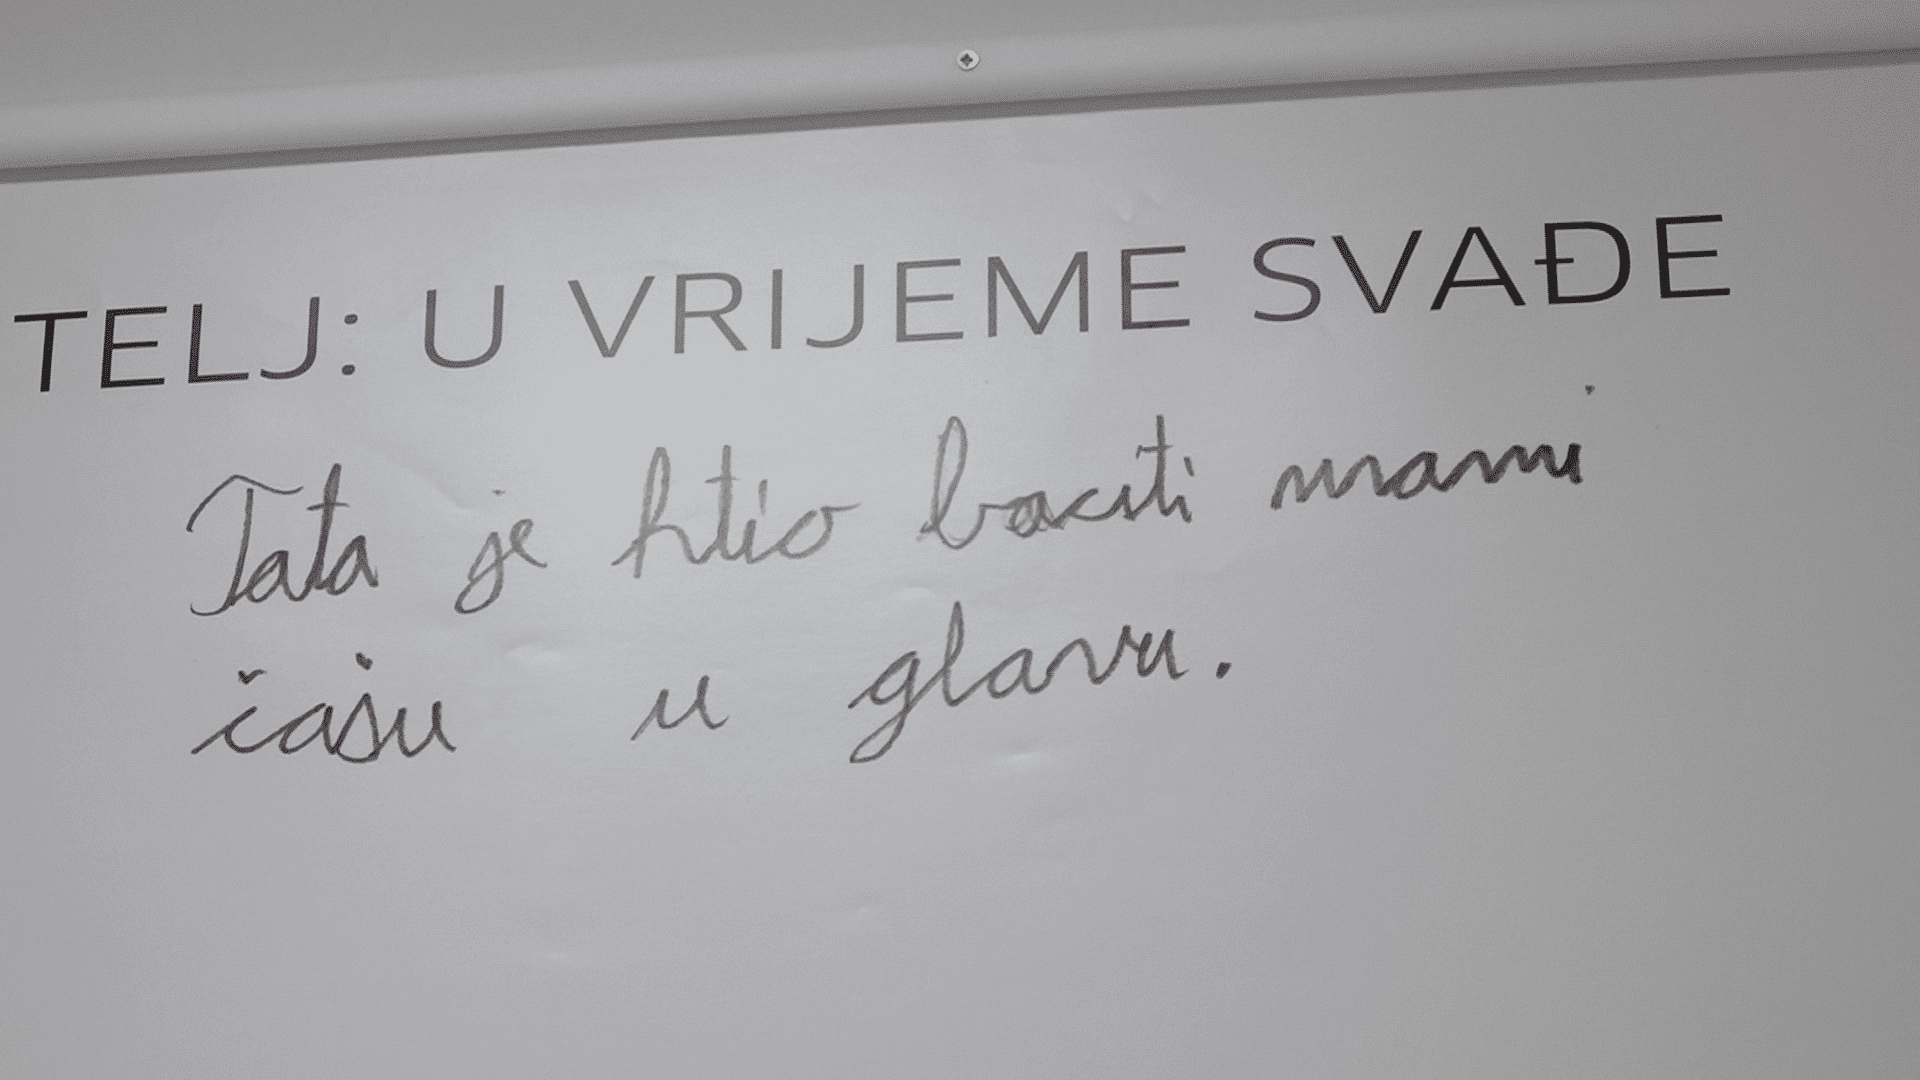 TELJ: U VRIJEME SVAĐE
Tata je htio baciti mami
čašu u glavu.